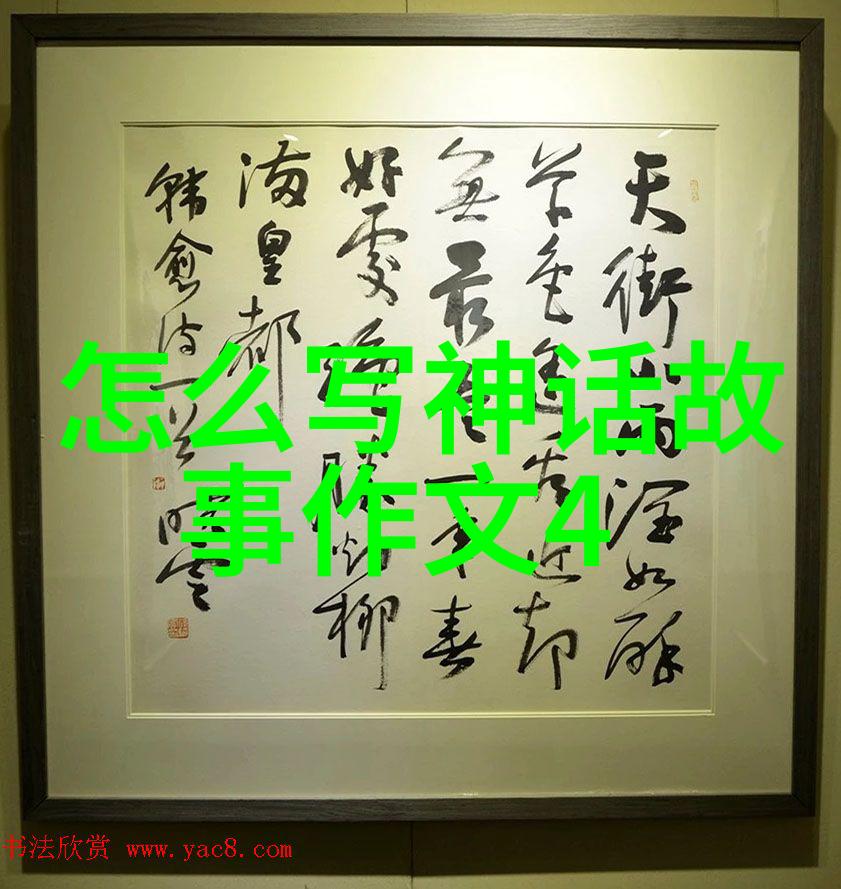 天街小雨润如酥
草色遥看近却
無最是一年春
好處绝勝烟柳
满皇都
韩愈诗一首
怎么写神话故
事作文4
书法欣赏 www.yac8.com